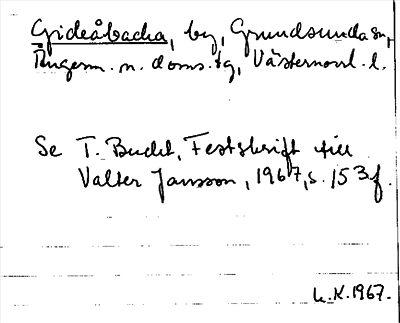 Gideåbacka, by, Grundsunda sn,
Ångerm. n. doms. tg, Västernorrl. l.
Se T. Bucht, Festskrift till
Valter Jansson, 1967, s. 153 f.
K. 1967.